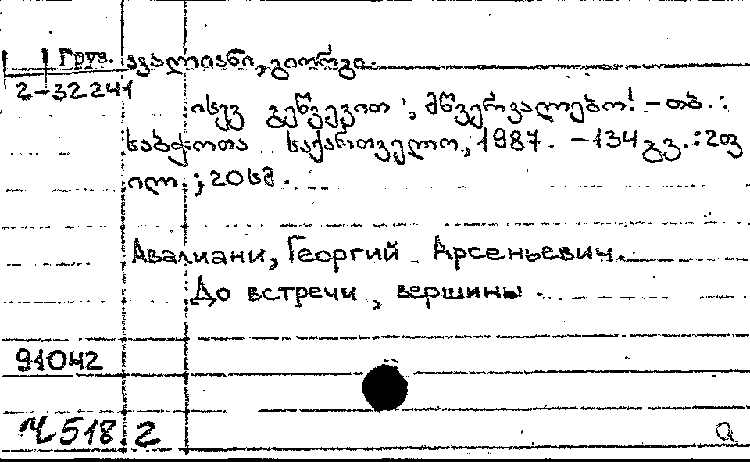 Груз. ავალიანი, გიორგი.
2-32241
ისევ გეწვევით, მწვერვალებო! - თბ.:
საბჭოთა საქართველო, 1987. - 134 გვ.: 2ფ
ილ.; 20სმ.
Авалиани, Георгий Арсеньевич.
До встречи, вершины.
91042
Ч518.2
a